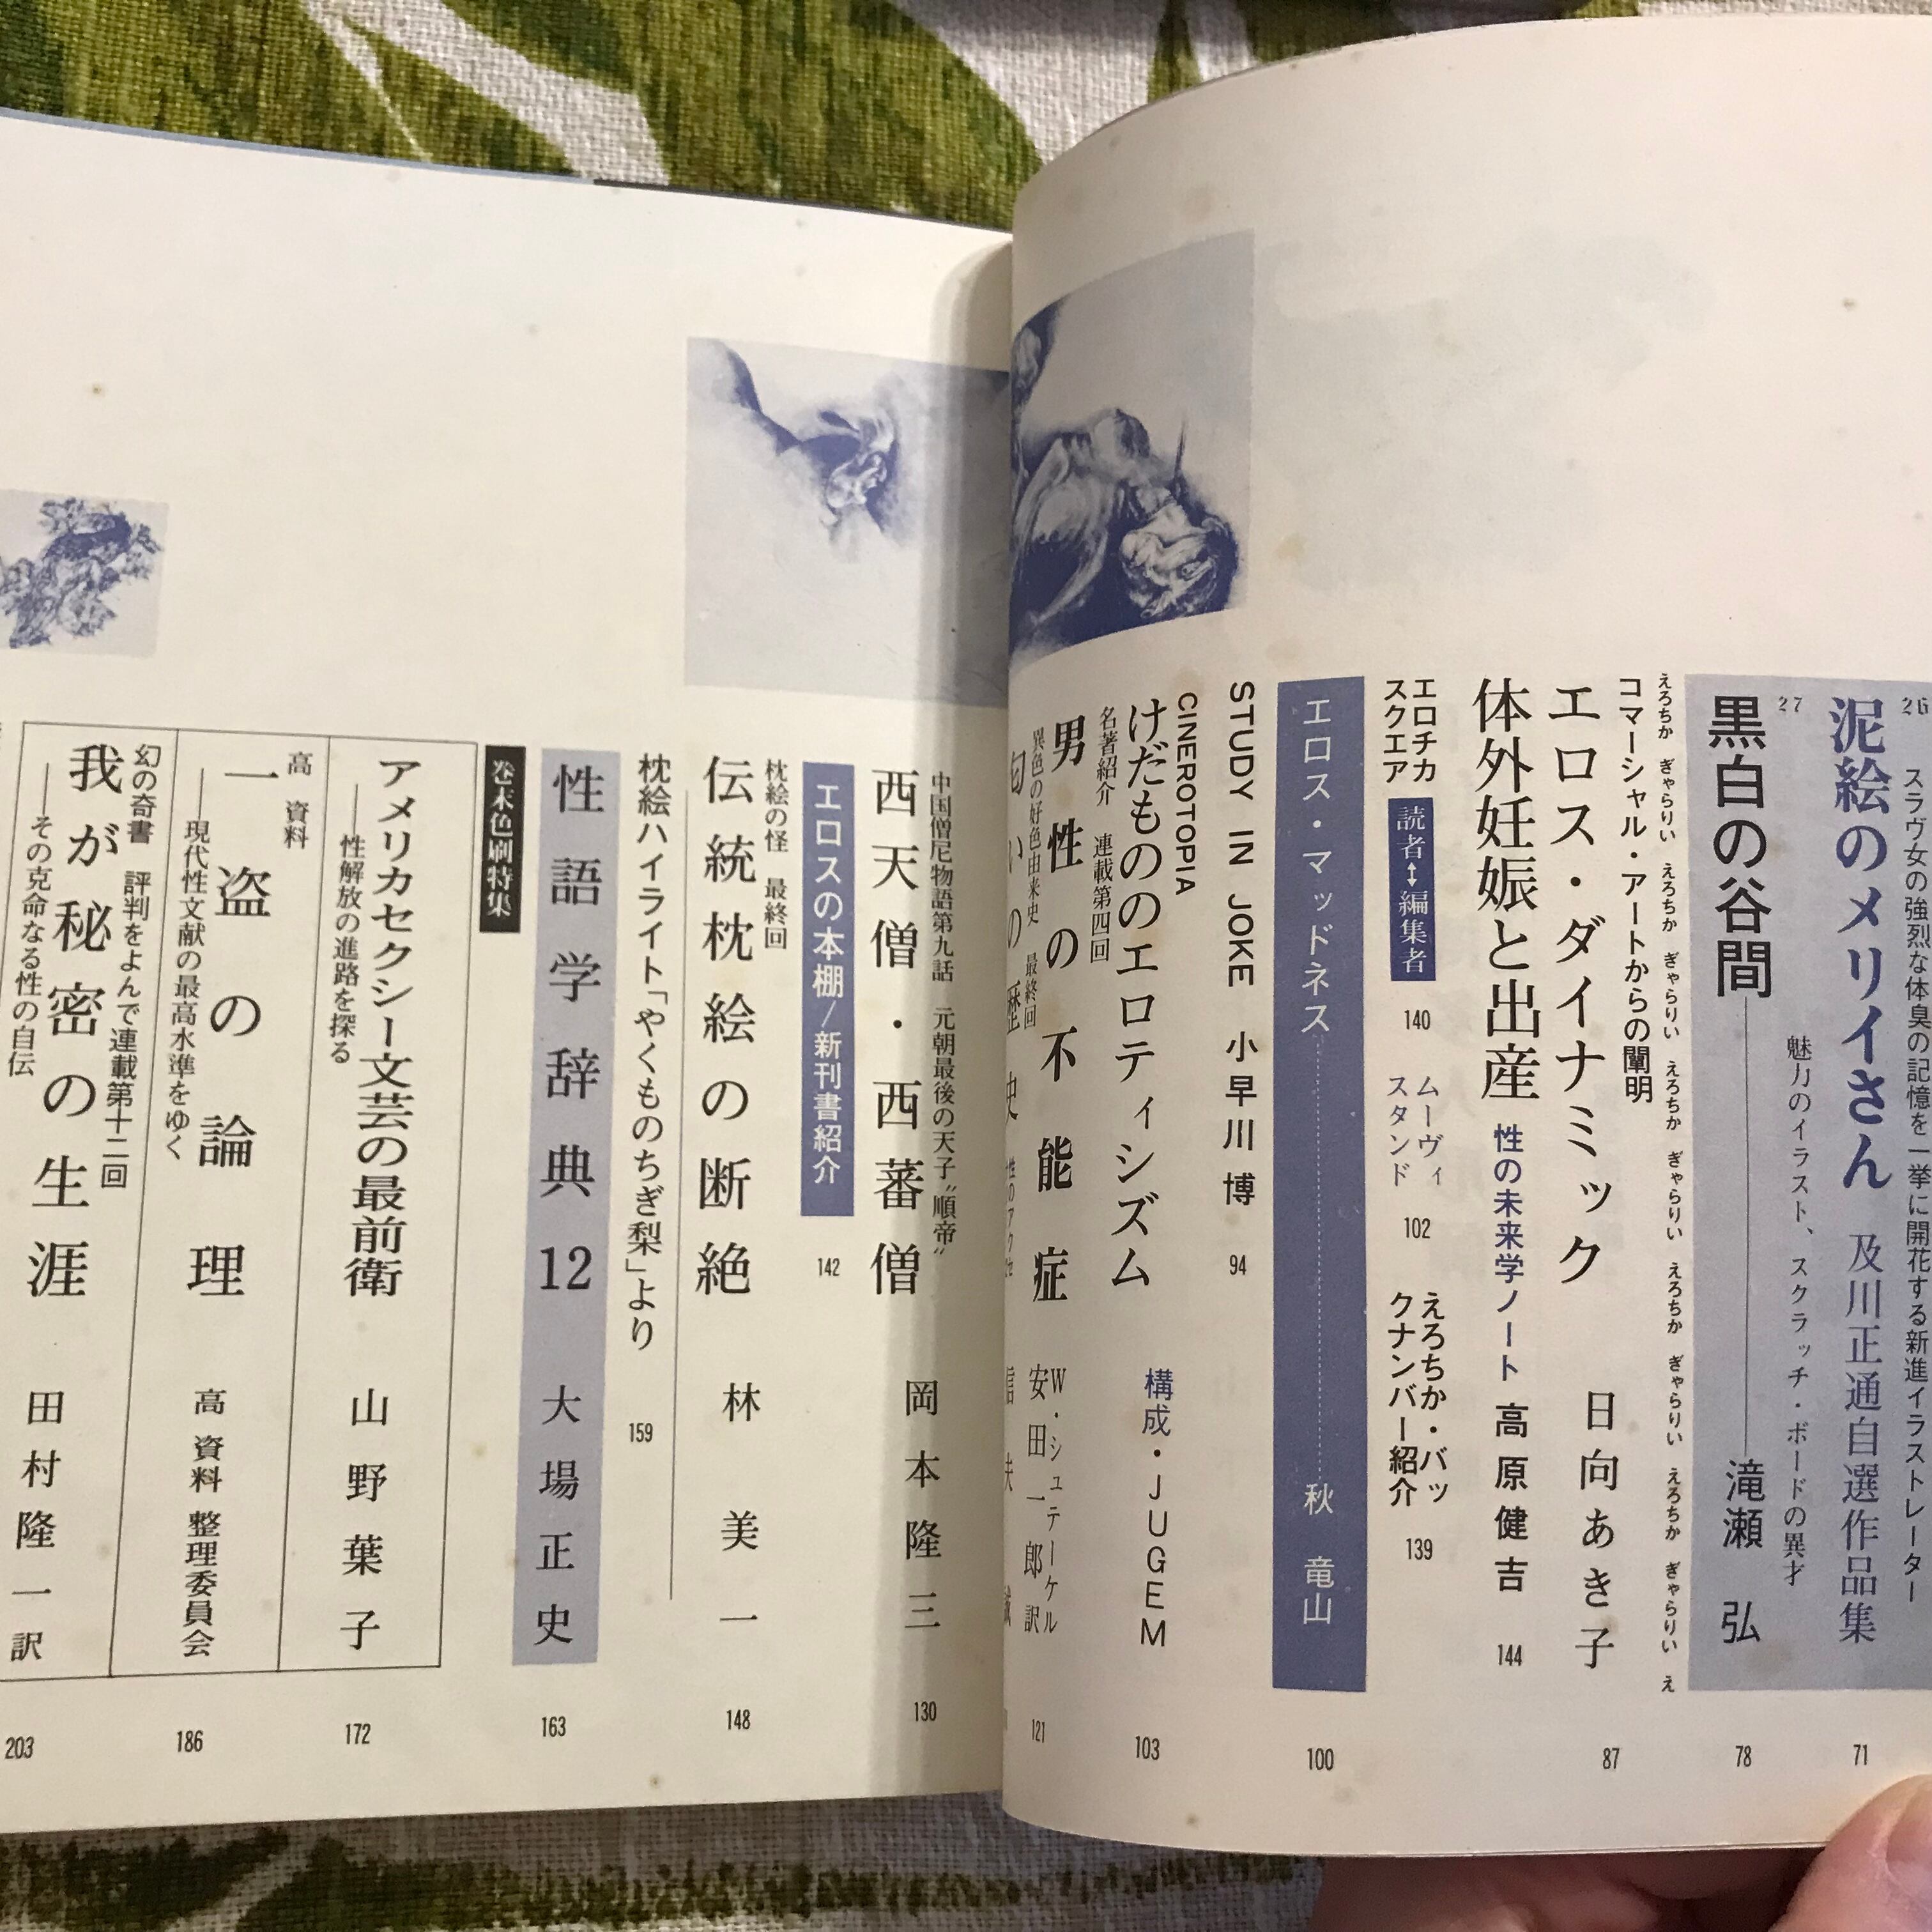 26
スラヴ女の強烈な体臭の記憶を一挙に開花する新進イラストレーター
泥絵のメリイさん 及川正通自選作品集
71
27
魅力のイラスト、スクラッチ・ボードの異才
黒白の谷間 滝瀬 弘
78
えろちか ぎゃらりい えろちか ぎゃらりい えろちか ぎゃらりい えろちか ぎゃらりい えろちか ぎゃらりい え
コマーシャル・アートからの闡明
エロス・ダイナミック 日向あき子
87
体外妊娠と出産 性の未来学ノート 高原健吉 144
エロチカスクエア 読者↔編集者 140
ムーヴィスタンド 102
えろちか・バックナンバー紹介 139
エロス・マッドネス 秋 竜山
100
STUDY IN JOKE 小早川 博 94
CINEROTOPIA
けだもののエロティシズム 構成・JUGEM
103
名著紹介 連載第四回
男性の不能症 W・シュテーケル 安田一郎 訳
121
異色の好色由来史 最終回
匂いの歴史
中国僧尼物語第九話 元朝最後の天子〝順帝〟
西天僧・西蕃僧 岡本隆三
130
エロスの本棚/新刊書紹介 142
枕絵の怪 最終回
伝統枕絵の断絶 林 美一
148
枕絵ハイライト「やくものちぎ梨」より 159
性語学辞典12 大場正史
163
巻末色刷特集
アメリカセクシー文芸の最前衛 山野葉子
──性解放の進路を探る
172
高 資料
一盗の論理 高 資料 整理委員会
──現代性文献の最高水準をゆく
186
幻の奇書 評判をよんで連載第十二回
我が秘密の生涯 田村隆一訳
──その克命なる性の自伝
203